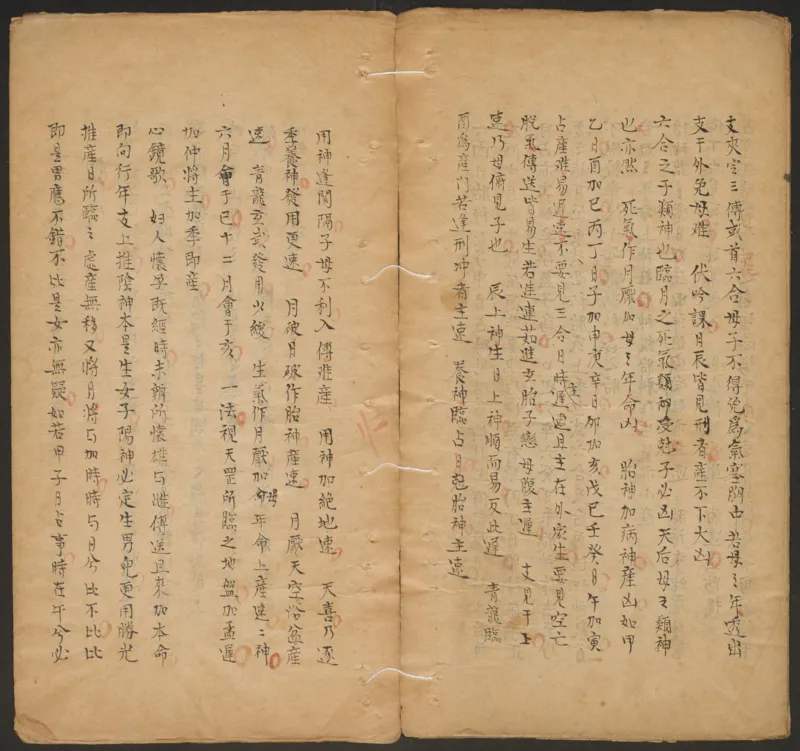 支夾定三傳或首六合母子不得兇為氣塞胸由若母之年透出
支干外免母難　伏吟課月辰皆見刑者產不下大凶
六合之子類神也臨月之死氣類神受尅子必凶天后母之類神
也亦然　死氣作月厭加母之年命凶　胎神加病神產凶如甲
乙日酉加巳丙丁日子加申庚辛日卯加亥戊己壬癸日午加寅
占產难易迟速不要見三合月時主遲迟且主在外家生要見空亡
脫氣傳送皆易生若進連茹進玄胎子戀母腹主遲　支見干上
速乃母俯見子也　辰上神生日上神順而易反此遲　青龍臨
酉為產门若逢刑冲者主速　養神臨占日起胎神主速
用神逢関隔子母不利入傳难產　用神加絶地速　天喜乃逐
季養神發用更速　月破月破作胎神產速　月厭天空浴盆產
速　青龍玄武發用少緩　生氣作月厭加母年命上產速二神
六月會于巳十二月會于亥　一法視天罡所臨之地盤加孟遲
加仲將生加季即產
心鏡歌　妇人懷孕既經時未辨所懷雄与雌傳送且來加本命
即向行年支上推陰神本是生女子陽神必定生男兒更用勝光
推產日所臨之處產無移又將月將与加時時与日兮比不比比
即是男應不錯不比是女亦無疑如若甲子月占事時在午兮必